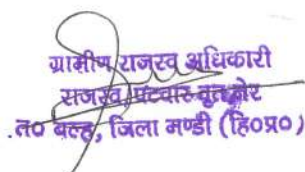 ग्रामीण राजस्व अधिकारी
राजस्व पटवार वृत
त० बल्ह, जिला मण्डी (हि०प्र०)